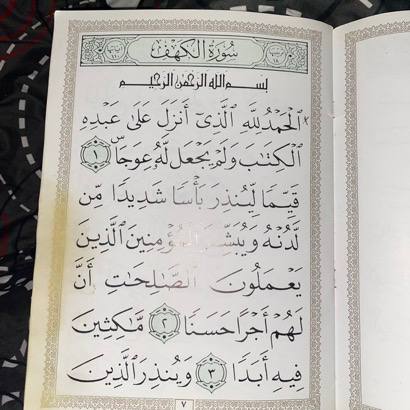 سُورَةُ الكَهْفِ
بسم الله الرحمن الرحيم
الْحَمْدُ لِلَّهِ الَّذِي أَنزَلَ عَلَى عَبْدِهِ
الْكِتَابَ وَلَمْ يَجْعَل لَّهُ عِوَجًا ١
قَيِّمًا لِّيُنذِرَ بَأْسًا شَدِيدًا مِّن
لَّدُنْهُ وَيُبَشِّرَ الْمُؤْمِنِينَ الَّذِينَ
يَعْمَلُونَ الصَّالِحَاتِ أَنَّ
لَهُمْ أَجْرًا حَسَنًا ٢ مَّاكِثِينَ
فِيهِ أَبَدًا ٣ وَيُنذِرَ الَّذِينَ
٧